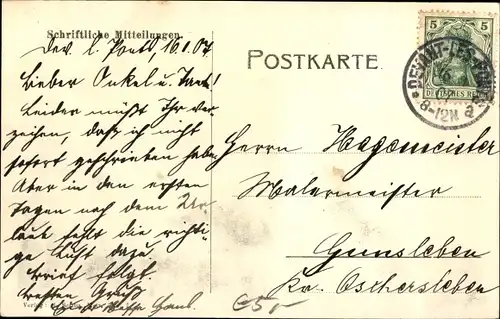 Schriftliche Mitteilungen.
Dev. l. Ponts, 16.1.07
Lieber Onkel u. Tante!
Leider müßt Ihr ver-
zeihen, daß ich nicht
sofort geschrieben habe.
Aber in den ersten
Tagen nach dem Ur-
laub fehlt die richti-
ge Lust dazu.
Brief folgt.
Besten Gruß
POSTKARTE
5 5
DEUTSCHES REICH
DEVANT-LES-PONTS
8-12N
Herrn Hagemeister
Malermeister
Gunsleben
Kr. Oschersleben
C5,-